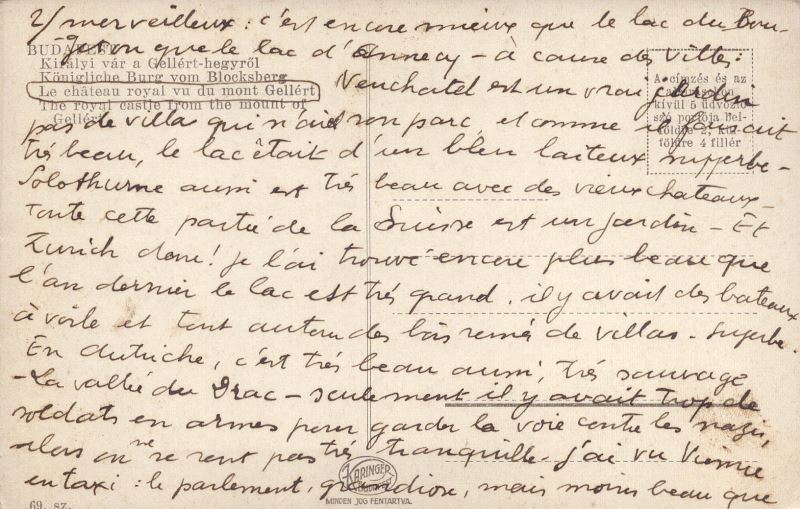 2/ merveilleux : c'est encore mieux que le lac du Bour-
get ou que le lac d'Annecy - à cause des villes :
Neuchatel est un vrai jardin
pas de villa qui n'aie son parc, et comme il faisait
très beau, le lac était d'un bleu laiteux superbe -
Solothurne aussi est très beau avec des vieux chateaux -
Toute cette partie de la Suisse est un jardin - Et
Zurich donc ! je l'ai trouvé encore plus beau que
l'an dernier le lac est très grand, il y avait des bateaux
à voile et tout autour des bois semés de villas - superbe.
En Autriche, c'est très beau aussi, très sauvage
- La vallée du Drac - seulement il y avait trop de
soldats en armes pour garder la voie contre les nazis,
alors on ne se sent pas très tranquille - j'ai vu Vienne
en taxi : le parlement, grandiose, mais moins beau que
BUDAPEST
Királyi vár a Gellért-hegyről
Königliche Burg vom Blocksberg
Le château royal vu du mont Gellért
The royal castle from the mount of
Gellért
A címzés és az
kívül 5 üdvözlő
szó portója bel-
földre 2, kül-
földre 4 fillér
KARINGER
BUDAPEST
MINDEN JOG FENTARTVA.
69. sz.